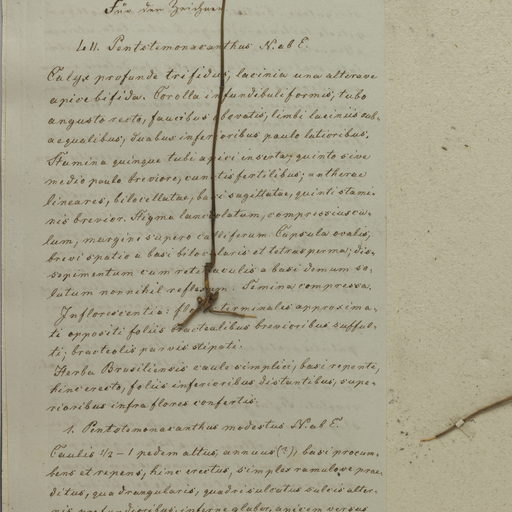 Für den Zeichner
Penstemonacanthus N. ab E.
Calyx profunde trifidus, lacinia una alterave
apice bifida. Corolla infundibuliformis, tubo
angusto recto, faucibus obovatis, limbi laciniis sub-
aequalibus, duabus inferioribus paulo latioribus.
Stamina quinque tubi apici inserta, quinto sive
medio paulo breviore, cunctis fertilibus; antherae
lineares, bilocellatae, basi sagittatae, quinti stami-
nis brevior. Stigma lanceolatum, compressiuscu-
lum, margine supero calliferum. Capsula ovalis,
brevi spatio a basi bilocularis et tetrasperma; dis-
sepimentum cum retinaculis a basi demum so-
lutum nonnihil reflexum. Semina compressa.
Inflorescentia: flores terminales approxima-
ti oppositi foliis bractealibus brevioribus sufful-
ti, bracteolis parvis stipati.
Herba Brasiliensis caule simplici, basi repente,
hinc erecto, foliis inferioribus distantibus, supe-
rioribus infra flores confertis.
1. Penstemonacanthus modestus N. ab E.
Caulis 1/2 – 1 pedem altus, annuus (?) basi procum-
bens et repens, hinc erectus, simplex ramulove prae-
ditus, quadrangularis, quadrisulcatus sulcis alter-
nis profundioribus, inferne glaber, apicem versus